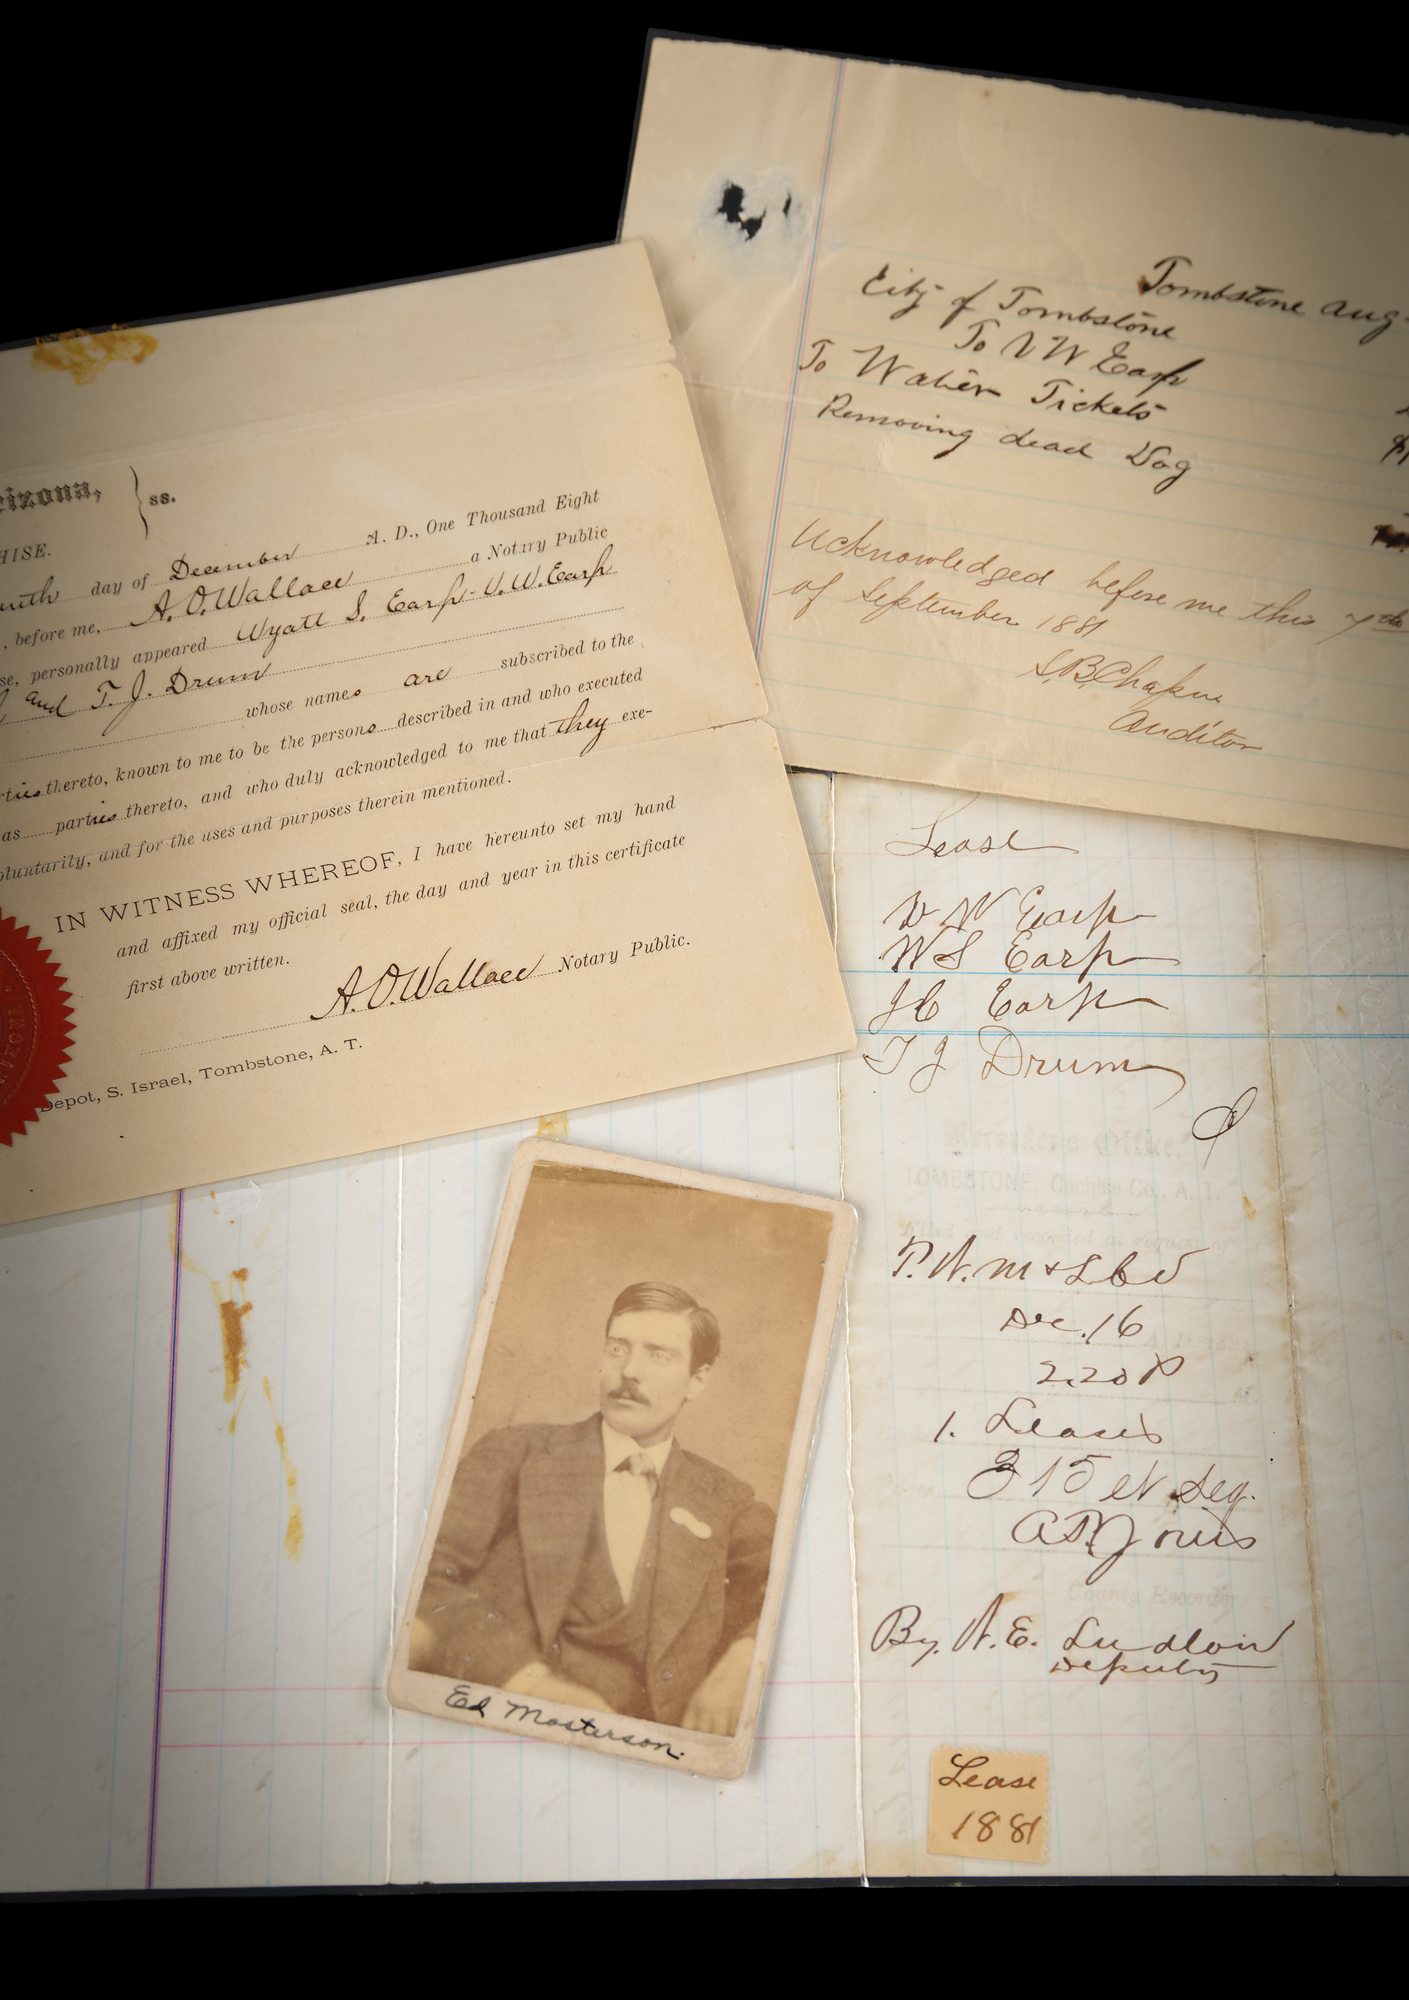 Tombstone Aug
City of Tombstone
To V W Earp
To Water Tickets
Removing dead Dog
Acknowledged before me this 7th
of September 1881
S.B. Chapin
Auditor
rizona, } ss.
HISE.
day of December A. D., One Thousand Eight
, before me, A. O. Wallace a Notary Public
se, personally appeared Wyatt S. Earp - V. W. Earp
and T. J. Drum
whose names are subscribed to the
rties thereto, known to me to be the persons described in and who executed
as parties thereto, and who duly acknowledged to me that they exe-
oluntarily, and for the uses and purposes therein mentioned.
IN WITNESS WHEREOF, I have hereunto set my hand
and affixed my official seal, the day and year in this certificate
first above written.
A. O. Wallace Notary Public.
Depot, S. Israel, Tombstone, A. T.
Lease
V W Earp
W S Earp
J C Earp
T J Drum
Recorder's Office,
TOMBSTONE, Cochise Co., A. T.
Filed and recorded at request of
Dec. 16
2.20 P
M.
1. Leases
315 et seq.
A T Jones
County Recorder
By. A. E. Ludlow
Deputy
Ed Masterson.
Lease
1881